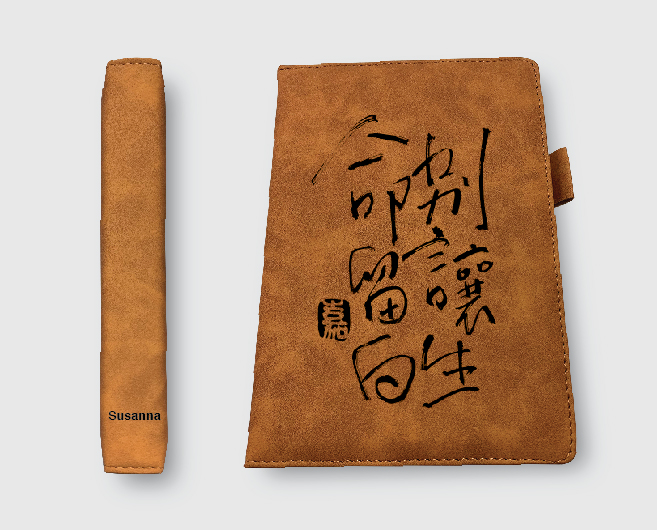 Susanna
別讓生
命留白